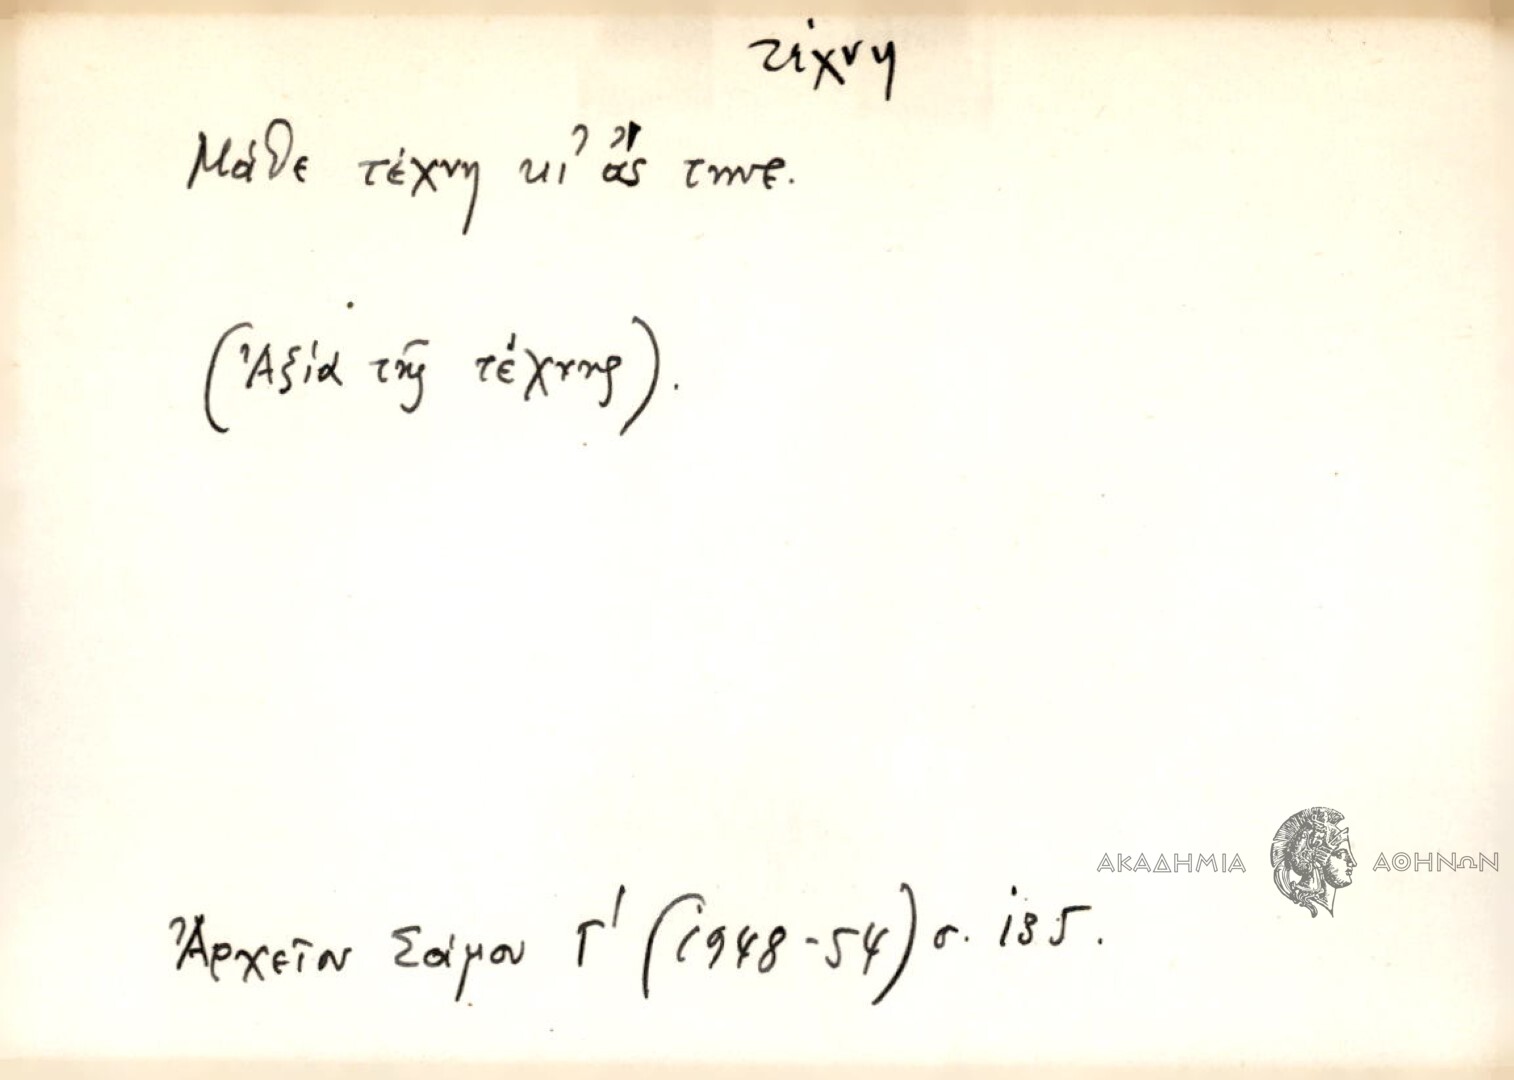 τέχνη
Μάθε τέχνη κι' ἄς τηνε.
(Ἀξία τῆς τέχνης).
ΑΚΑΔΗΜΙΑ ΑΘΗΝΩΝ
Ἀρχεῖον Σάμου Γ' (1948-54) σ. 135.